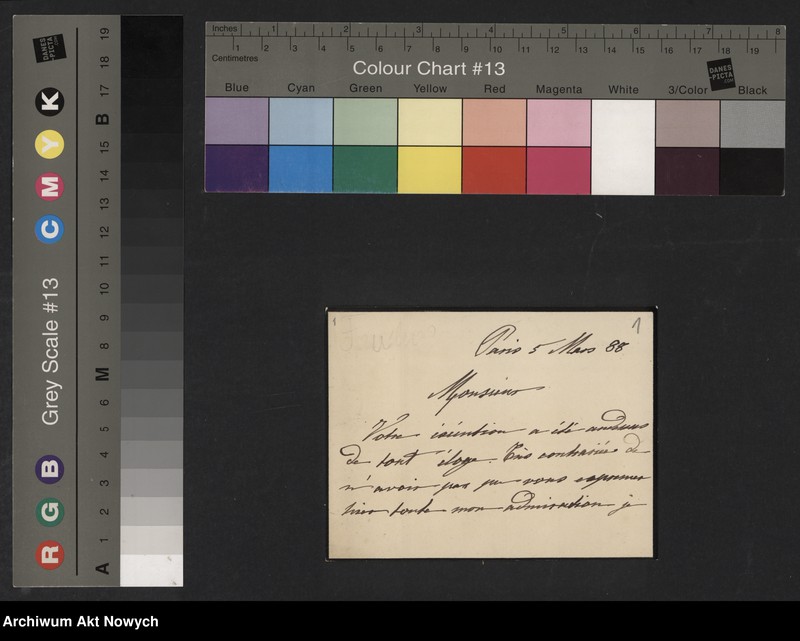 Inches 1 2 3 4 5 6 7 8
Centimetres 1 2 3 4 5 6 7 8 9 10 11 12 13 14 15 16 17 18 19
Colour Chart #13
DANES-PICTA.COM
Blue Cyan Green Yellow Red Magenta White 3/Color Black
DANES-PICTA.COM
Grey Scale #13
R G B C M Y K
A 1 2 3 4 5 6 M 8 9 10 11 12 13 14 15 B 17 18 19
1 1
Paris 5 Mars 88
Monsieur
Votre exécution a été au dessus
de tout éloge. Très contrariée de
n'avoir pas pu vous exprimer
hier toute mon admiration je
Archiwum Akt Nowych